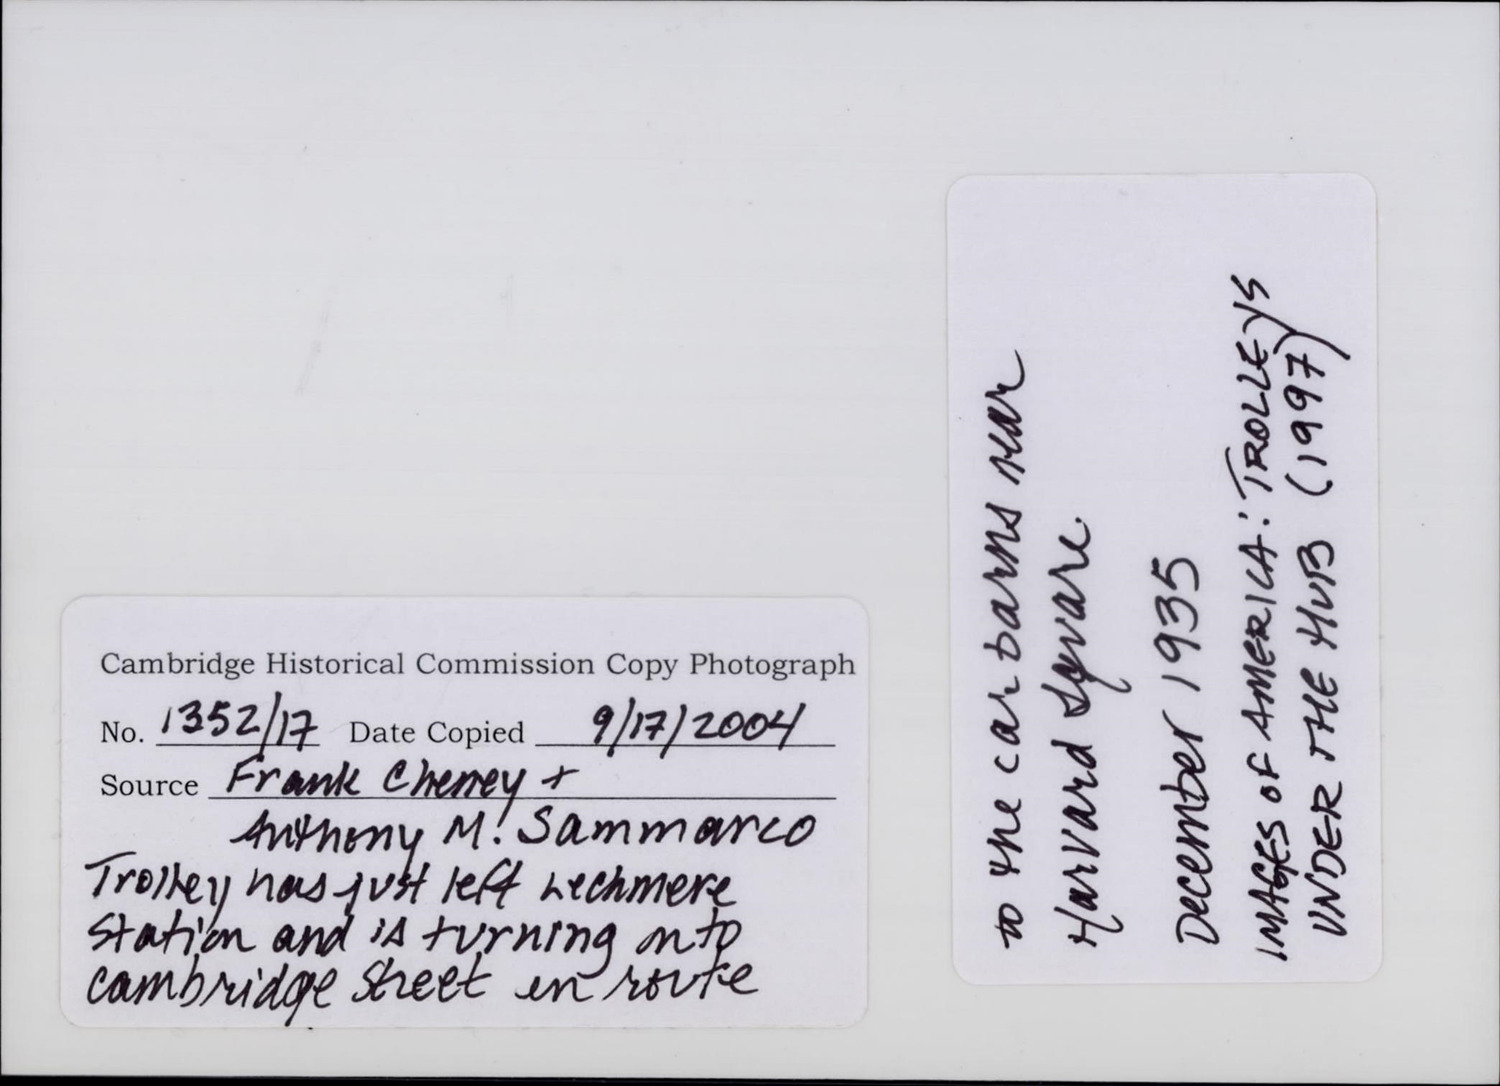 Cambridge Historical Commission Copy Photograph
No. 1352/17 Date Copied 9/17/2004
Source Frank Cheney +
Anthony M. Sammarco
Trolley has just left Lechmere
Station and is turning onto
Cambridge Street en route
to the car barns near
Harvard Square.
December 1935
IMAGES OF AMERICA: TROLLEYS
UNDER THE HUB (1997)